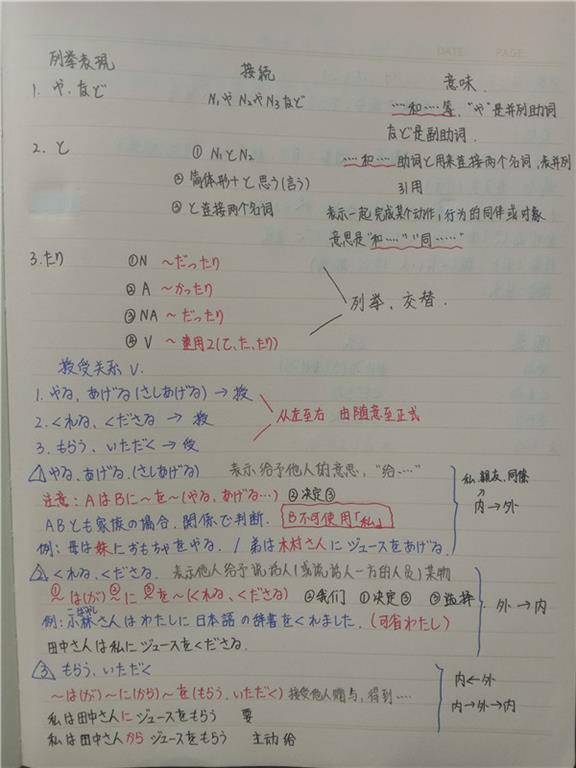 DATE PAGE
列举表现 接続 意味.
1. や、など N₁や N₂や N₃など ……和……等, "や"是并列助词
など是副助词.
2. と ① N₁と N₂ ……和…… 助词と用来连接两个名词,表并列
② 简体形+と思う(言う) 引用
③ と连接两个名词 表示一起完成某个动作,行为的同伴或对象
意思是"和……""同……"
3. たり ①N ~だったり
② A ~かったり
③ NA ~だったり
④ V ~连用2(て、た、たり)
列举、交替.
授受关系 V.
1. やる、あげる(さしあげる) → 授
2. くれる、くださる → 授
3. もらう、いただく → 受
从左至右 由随意至正式
△1 やる、あげる、(さしあげる) 表示给予他人的意思,"给……"
注意: AはBに~を~(やる、あげる…) ②决定③
ABとも家族の場合、関係で判断. B不可使用「私」
例: 母は妹におもちゃをやる. / 弟は木村さんにジュースをあげる.
私、親友、同僚
内→外
△2 くれる、くださる. 表示他人给予说话人(或说话人一方的人员)某物
①は(が)②に③を~(くれる、くださる) ②我们 ①决定③
例: 小林さんはわたしに日本語の辞書をくれました. (可省わたし)
こばやし
田中さんは私にジュースをくださる.
外→内
△3 もらう、いただく
~は(が)~に(から)~を(もらう、いただく) 接受他人赠与,得到……
私は田中さんにジュースをもらう 要
私は田中さんからジュースをもらう 主动给
内←外
内→外→内